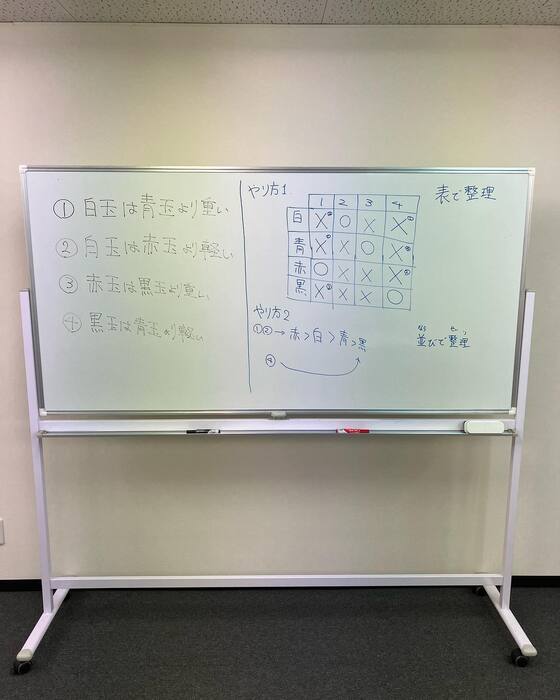 ① 白玉は青玉より重い
② 白玉は赤玉より軽い
③ 赤玉は黒玉より重い
④ 黒玉は青玉より軽い
やり方1
表で整理
1 2 3 4
白 X② O X X④
青 X① X O X④
赤 O X X X③
黒 X③ X X O
やり方2
①② → 赤 > 白 > 青 > 黒
④
なら せいり
並びで整理